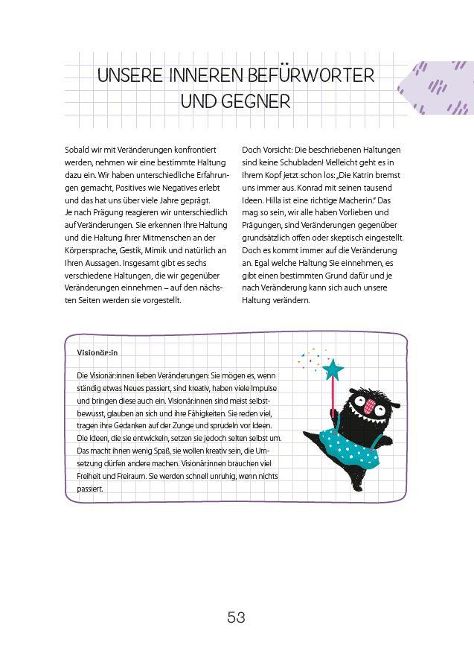 UNSERE INNEREN BEFÜRWORTER
UND GEGNER
Sobald wir mit Veränderungen konfrontiert
werden, nehmen wir eine bestimmte Haltung
dazu ein. Wir haben unterschiedliche Erfahrun-
gen gemacht, Positives wie Negatives erlebt
und das hat uns über viele Jahre geprägt.
Je nach Prägung reagieren wir unterschiedlich
auf Veränderungen. Sie erkennen Ihre Haltung
und die Haltung Ihrer Mitmenschen an der
Körpersprache, Gestik, Mimik und natürlich an
Ihren Aussagen. Insgesamt gibt es sechs
verschiedene Haltungen, die wir gegenüber
Veränderungen einnehmen – auf den nächs-
ten Seiten werden sie vorgestellt.
Doch Vorsicht: Die beschriebenen Haltungen
sind keine Schubladen! Vielleicht geht es in
Ihrem Kopf jetzt schon los: „Die Katrin bremst
uns immer aus. Konrad mit seinen tausend
Ideen. Hilla ist eine richtige Macherin.“ Das
mag so sein, wir alle haben Vorlieben und
Prägungen, sind Veränderungen gegenüber
grundsätzlich offen oder skeptisch eingestellt.
Doch es kommt immer auf die Veränderung
an. Egal welche Haltung Sie einnehmen, es
gibt einen bestimmten Grund dafür und je
nach Veränderung kann sich auch unsere
Haltung verändern.
Visionär:in
Die Visionär:innen lieben Veränderungen: Sie mögen es, wenn
ständig etwas Neues passiert, sind kreativ, haben viele Impulse
und bringen diese auch ein. Visionär:innen sind meist selbst-
bewusst, glauben an sich und ihre Fähigkeiten. Sie reden viel,
tragen ihre Gedanken auf der Zunge und sprudeln vor Ideen.
Die Ideen, die sie entwickeln, setzen sie jedoch selten selbst um.
Das macht ihnen wenig Spaß, sie wollen kreativ sein, die Um-
setzung dürfen andere machen. Visionär:innen brauchen viel
Freiheit und Freiraum. Sie werden schnell unruhig, wenn nichts
passiert.
53